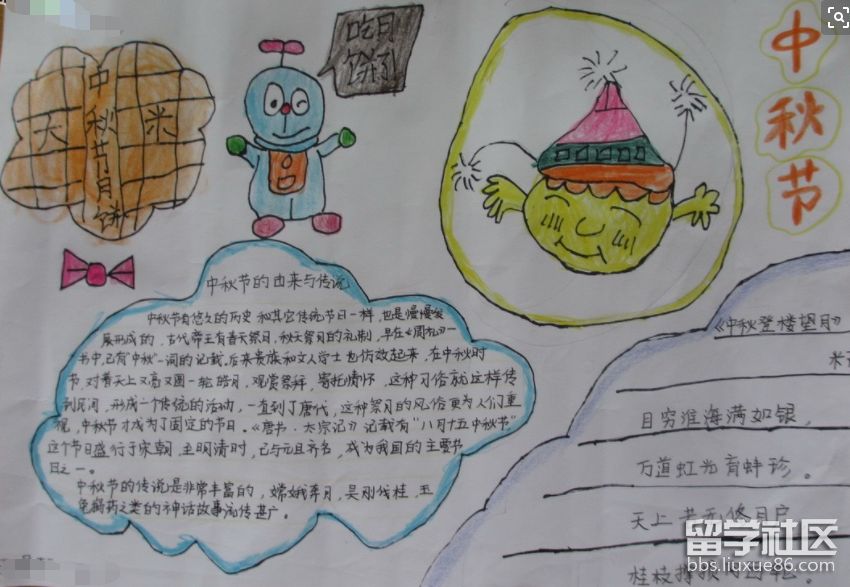 中秋节月饼
大
米
吃月
饼了
中秋节
中秋节的由来与传说
中秋节有悠久的历史 和其它传统节日一样，也是慢慢发
展形成的，古代帝王有春天祭日，秋天祭月的礼制，早在《周礼》一
书中，已有“中秋”一词的记载，后来贵族和文人学士也仿效起来，在中秋时
节，对着天上又高又圆一轮皓月，观赏祭拜，寄托情怀，这种习俗就这样传
到民间，形成一个传统的活动，一直到了唐代，这种祭月的风俗更为人们重
视，中秋节才成为了固定的节日。《唐书·太宗记》记载有“八月十五中秋节”
这个节日盛行于宋朝，至明清时，已与元旦齐名，成为我国的主要节
日之一。
中秋节的传说是非常丰富的，嫦娥奔月，吴刚伐桂，玉
兔捣药之类的神话故事流传甚广。
《中秋登楼望月》
米
目穷淮海满如银，
万道虹光育蚌珍。
天上若无修月户
桂枝撑
留学社区
bbs.liuxue86.com